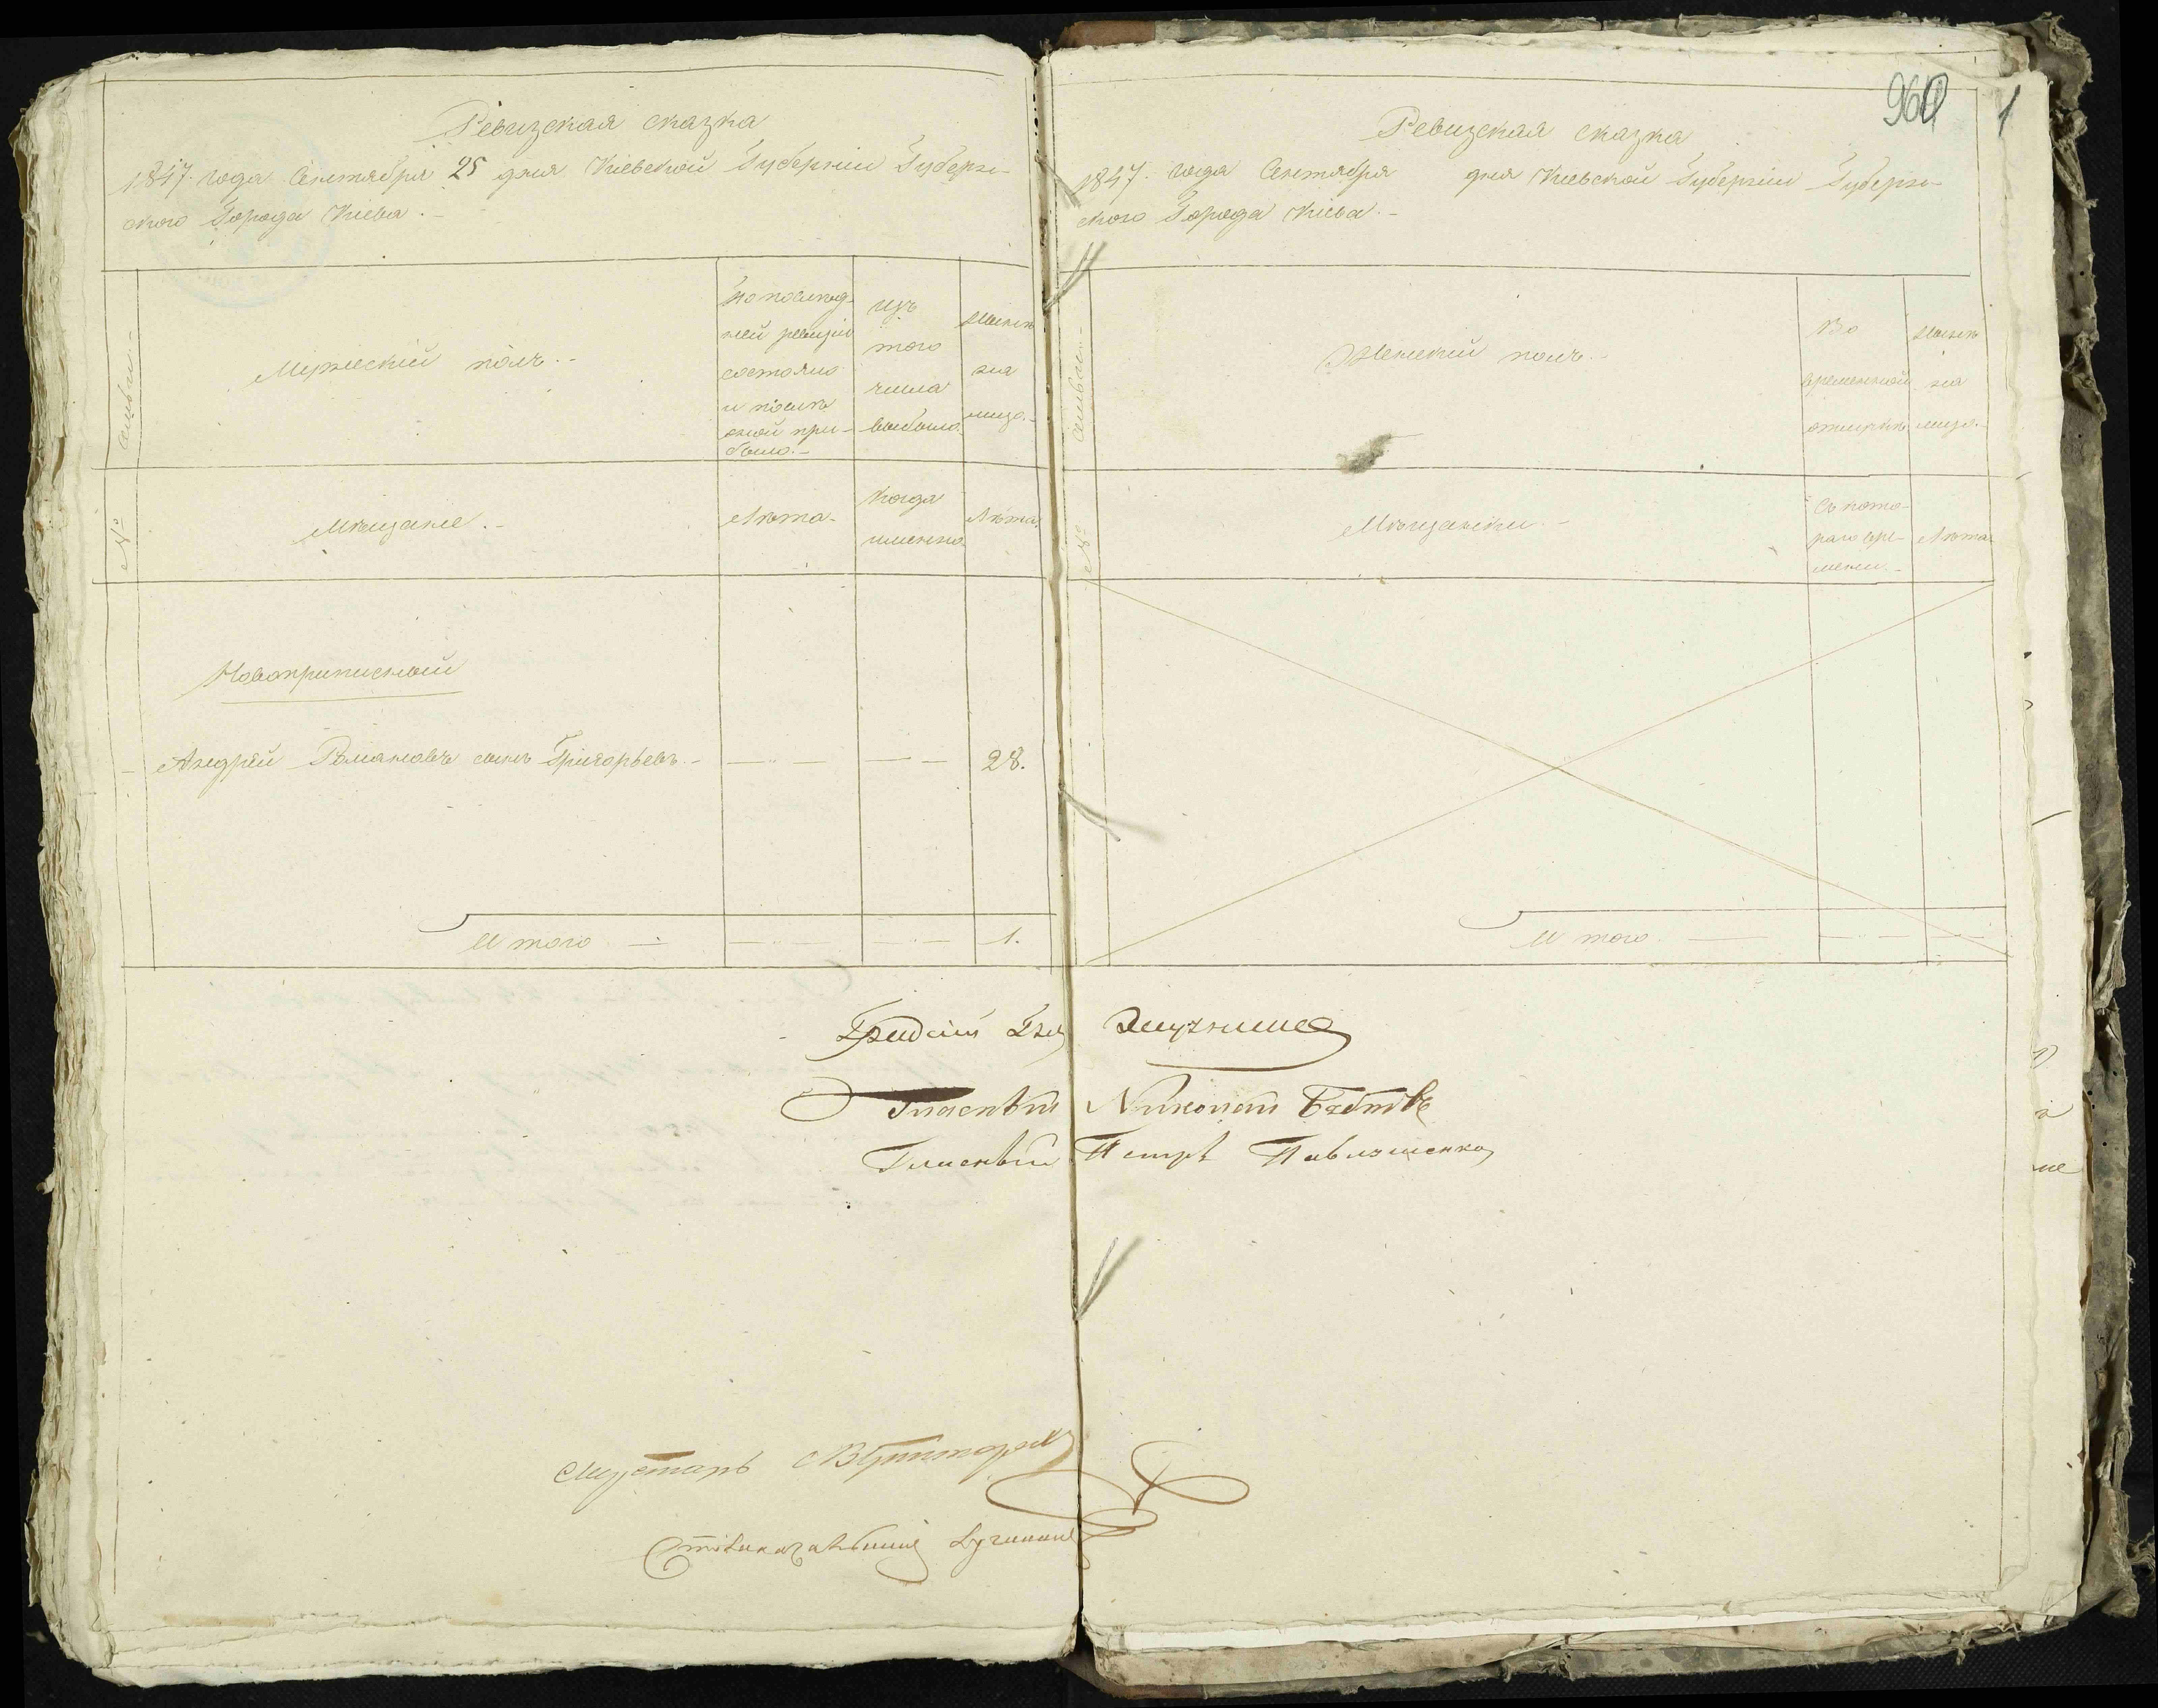 Ревизская сказка
1847. года Сентября 25 дня Кіевской Губерніи Губерн-
ского Города Кіева. -
Семьи. -
Мужескій полъ. -
По послѣд-
ней ревизіи
состояло
и послѣ
оной при-
было. -
Изъ
того
числа
выбыло.
Нынѣ
на
лицо. -
№
Мѣщане. -
Лѣта.
Когда
именно
Лѣта.
Новоприписный
Андрей Романовъ сынъ Григорьевъ. - 28.
И того — 1.
960 1
Ревизская сказка
1847. года Сентября дня Кіевской Губерніи Губерн-
ского Города Кіева. -
Семьи. -
Женскій полъ. -
Во
временной
отлучкѣ
Нынѣ
на
лицо. -
№
Мѣщанки. -
Съ кото-
раго вре-
мени. -
Лѣта.
И того. —
Гласный Николай
Гласный Петръ Павлюшенко